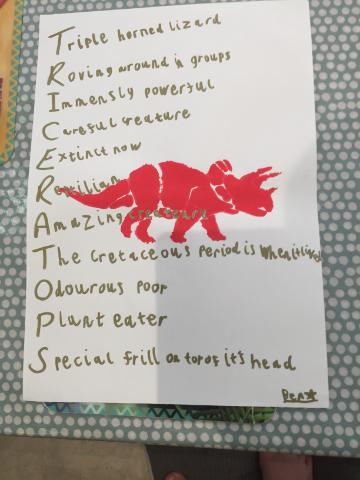 Triple horned lizard
Roving around in groups
Immensly powerful
Careful creature
Extinct now
Reptilian
Amazing creatuers
The cretaceous period is when it lived
Odourous poop
Plant eater
Special frill on top of it's head
Ben